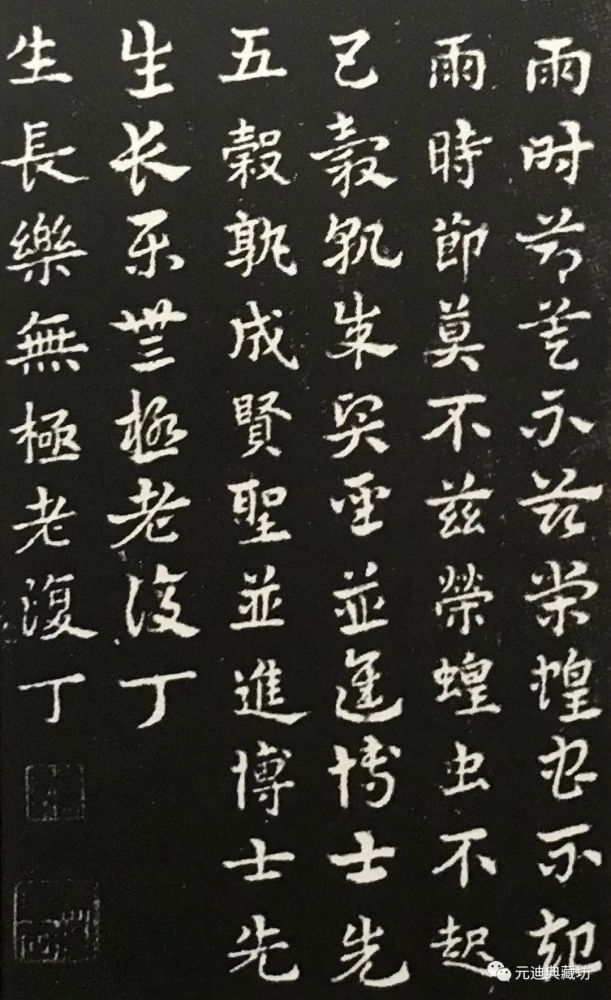 雨時節莫不兹榮蝗虫不起
雨時節莫不兹榮蝗虫不起
五穀孰成賢聖並進博士先
五穀孰成賢聖並進博士先
生長樂無極老復丁
生長樂無極老復丁
元迪典藏坊